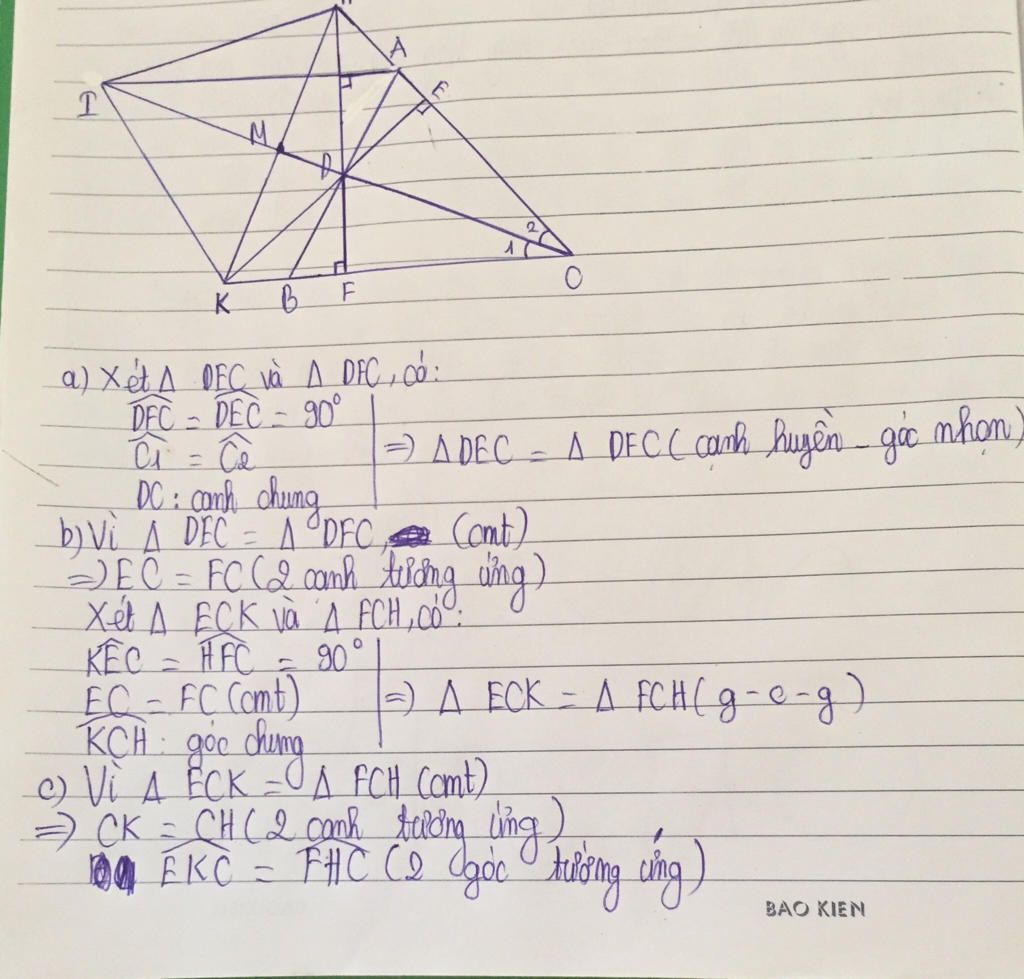 A
I
E
M
D
2
1
K
B
F
C
a) Xét Δ DEC và Δ DFC, có:
DFC = DEC = 90°
C1 = C2
=> Δ DEC = Δ DFC ( cạnh huyền - góc nhọn)
DC : cạnh chung
b) Vì Δ DEC = Δ DFC, (cmt)
=> EC = FC ( 2 cạnh tương ứng )
Xét Δ ECK và Δ FCH, có:
KEC = HFC = 90°
EC = FC (cmt)
=> Δ ECK = Δ FCH ( g - c - g )
KCH : góc chung
c) Vì Δ ECK = Δ FCH (cmt)
=> CK = CH ( 2 cạnh tương ứng )
EKC = FHC ( 2 góc tương ứng )
BAO KIEN